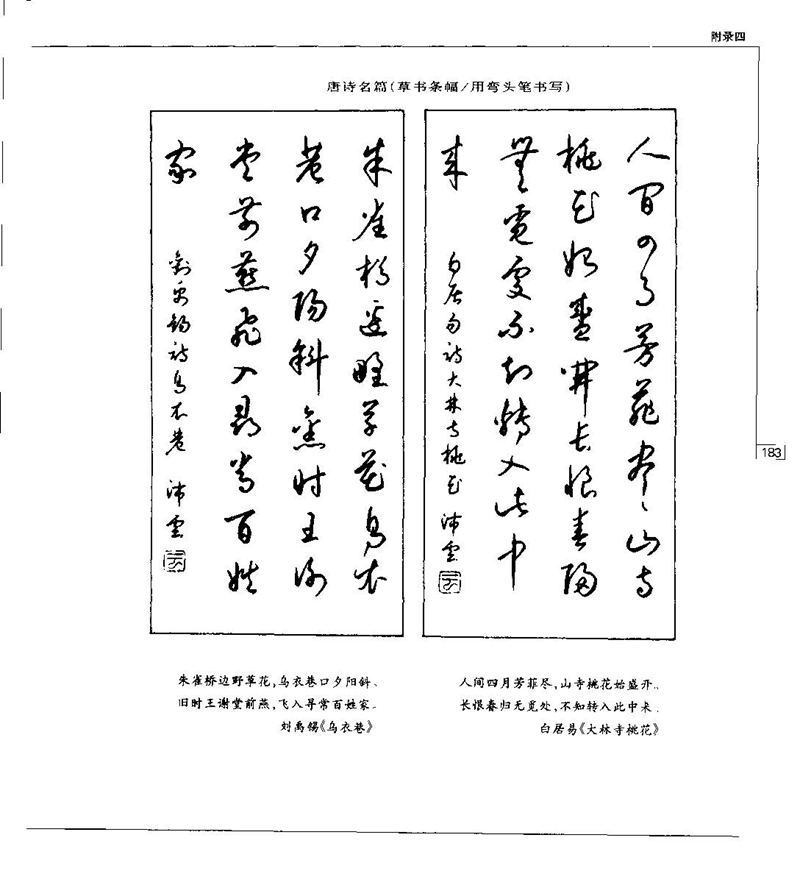 附录四
唐诗名篇(草书条幅/用弯头笔书写)
人间四月芳菲尽山寺
桃花始盛开长恨春归
無覓處不知轉入此中
来
白居易诗大林寺桃花 沛雲
朱雀桥边野草花乌衣
巷口夕阳斜舊时王谢
堂前燕飞入尋常百姓
家
劉禹锡诗乌衣巷 沛雲
183
人间四月芳菲尽,山寺桃花始盛开。
长恨春归无觅处,不知转入此中来。
白居易《大林寺桃花》
朱雀桥边野草花,乌衣巷口夕阳斜。
旧时王谢堂前燕,飞入寻常百姓家。
刘禹锡《乌衣巷》